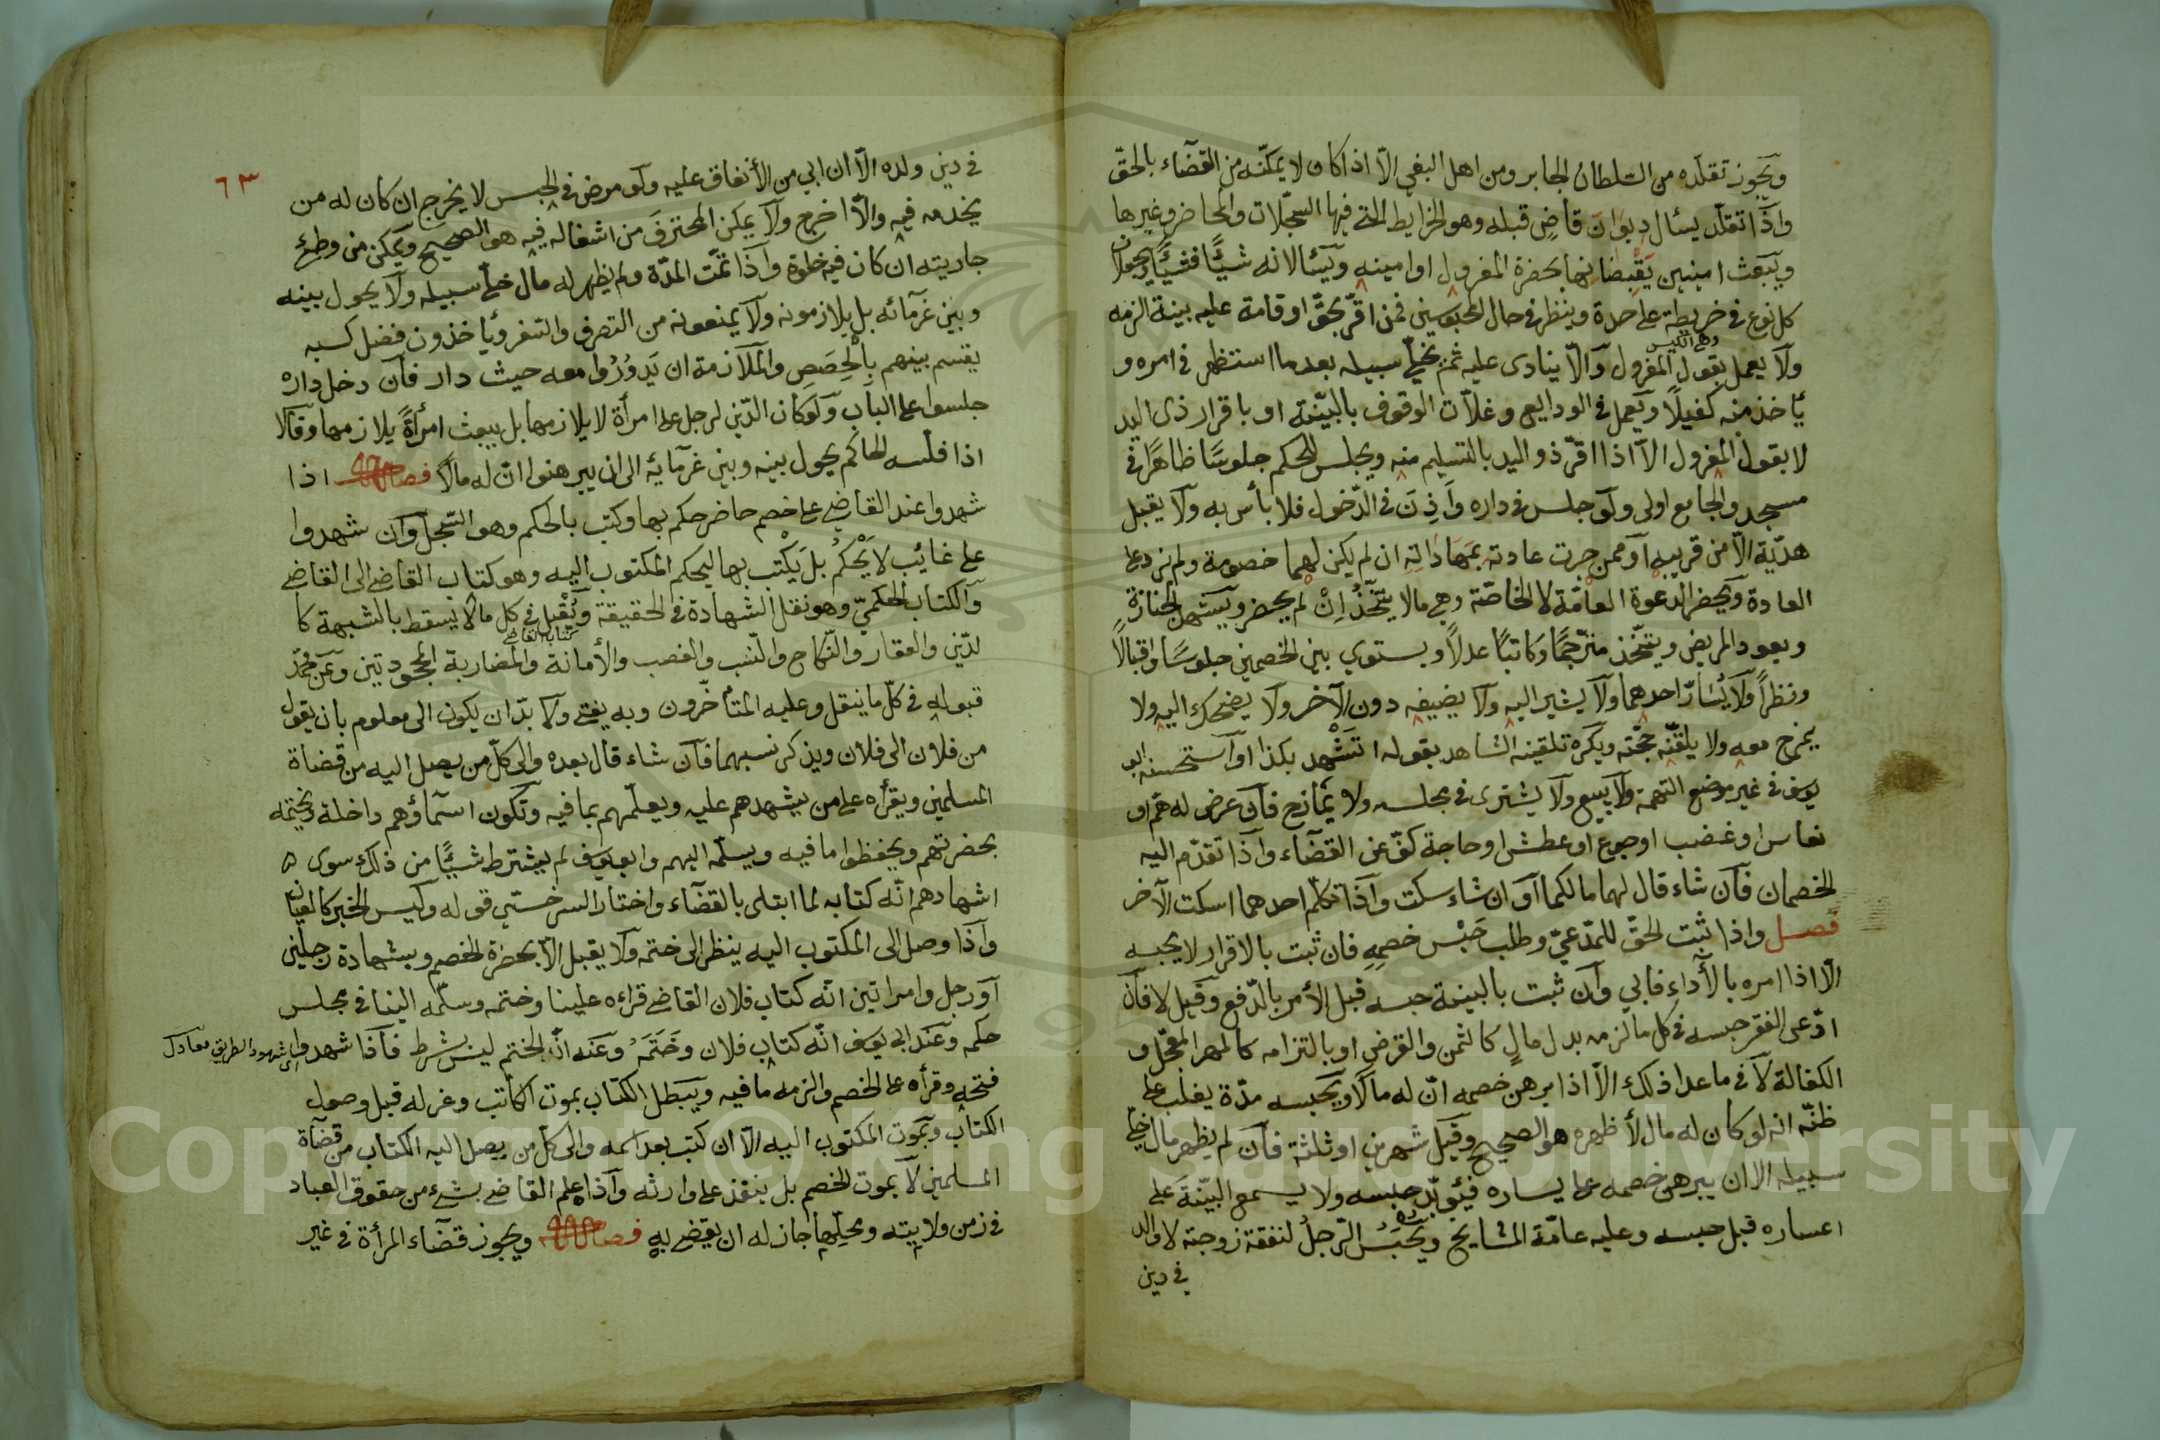 ويجوز تقلده من السلطان الجاير ومن اهل البغي الّا اذا كان لا يمكّنه من القضآء بالحق
واذا تقلّد يسأل ديوان قاضٍ قبله وهو الخرايط التي فيها السجلّات والمحاضر وغيرها
ويبعث امينين يقبضانها بحضرة المعزول او امينه ويسألانه شيئًا فشيئًا ويجعلان
كل نوع في خريطة على حدة وينظر في حال المحبوسين فمن اقرّ بحقّ او قامة عليه بينة الزمه
ولا يعمل بقول المعزول والّا ينادى عليه ثم يخلّي سبيله بعد ما استظهر في امره و
يأخذ منه كفيلًا ويعمل في الودايع وغلّات الوقوف بالبيّنة او باقرار ذى اليد
لا بقول المعزول الّا اذا اقرّ ذو اليد بالتسليم منه ويجلس للحكم جلوسًا ظاهرًا في
مسجد والجامع اولى ولو جلس في داره وأذِنَ في الدّخول فلا بأس به ولا يقبل
هديّة الّا من قريبه او ممن جرت عادته بمهاداته ان لم يكن لهما خصومة ولم تزد على
العادة ويحضر الدعوة العامّة لا الخاصّة وهي ما لا يتّخذ اِنْ لم يحضر ويشهد الجنازة
ويعود المريض ويتّخذ مترجمًا وكاتبًا عدلًا ويستوي بين الخصمين جلوسًا واقبالًا
ونظراً ولا يُسَارّ احدهما ولا يشير اليه ولا يضيفه دون الآخر ولا يضحك اليه ولا
يمزح معه ولا يلقّنه حجّته ويكره تلقينه الشاهد بقوله اتشْهد بكذا واستحسنه ابو
يوسف في غير موضع التهمة ولا يبيع ولا يشترى في مجلسه ولا يمازح فان عرض له همّ او
نعاس او غضب او جوع او عطش او حاجة كفّ عن القضآء واذا تقدّم اليه
الخصمان فان شاء قال لهما مالكما او ان شاء سكت واذا تكلّم احدهما اسكت الآخر
فصل واذا ثبت الحقّ للمدّعيّ وطلب حَبْس خصمِهِ فان ثبت بالاقرار لا يحبسه
الّا اذا امره بالأداءِ فابي وان ثبت بالبينة حبسه قبل الأمر بالدّفع وقيل لا فان
ادّعى الفقر حبسه في كل ما لزمه بدل مالٍ كالثمن والقرض او بالتزامه كالمهر المعجّل و
الكفالة لا في ما عدا ذلك الّا اذا برهن خصمه انّ له مالًا ويحبسه مدّة يغلب على
ظنّه انه لو كان له مال لأظهره هو الصحيح وقيل شهرين او ثلثة فان لم يظهر مال خلّي
سبيله الا ان يبرهن خصمه على يساره فيؤبّد حبسه ولا يسمع البيّنة على
اعساره قبل حبسه وعليه عامّة المشايخ ويُحْبَسُ الرّجل لنفقة زوجته لا والد
في دين
٦٣
في دين ولده الّا ان ابي من الأنفاق عليه ولو مرض في الحبس لا يخرج ان كان له من
يخدمه فيه والّا اخرج ولا يمكن المحترف من اشغاله فيه هو الصحيح ويمكن من وطئ
جاريته ان كان فيه خلوة واذا تمّت المدّة ولم يظهر له مال خلّى سبيله ولا يحول بينه
وبين غرمآئه بل يلازمونه ولا يمنعونه من التصرف والسّفر ويأخذون فضل كسبه
يقسم بينهم بِالْحِصَصِ والملازمة ان يَدُورُوا معه حيث دار فان دخل داره
جلسوا على الباب ولو كان الدّين لرجل على امرأة لا يلازمها بل يبعث امرأةً يلازمها وقالا
اذا فلّسه الحاكم يحول بينه وبين غرمآئه الى ان يبرهنوا انّ له مالًا فصل اذا
شهدوا عند القاضي على خصم حاضر حكم بها وكتب بالحكم وهو السّجل وان شهدوا
على غائب لا يَحْكُمُ بل يَكْتب بها ليحكم المكتوب اليه وهو كتاب القاضي الى القاضي
والكتاب الحكميّ وهو نقل الشهادة في الحقيقة ويُقْبل في كل مالا يسقط بالشبهة كا
كتاب القاضي
لدّين والعقار والنّكاح والنّسب والغصب والأمانة والمضاربة المجحودتين وعن محمّد
قبوله في كلّ ما ينقل وعليه المتأخّرون وبه يفتى ولا بدّ ان يكون الى معلوم بان يقول
من فلان الى فلان ويذكر نسبهما فان شاء قال بعده والى كلّ من يصل اليه من قضاة
المسلمين ويقرأه على من يشهدهم عليه ويعلّمهم بما فيه وتكون اسمآؤهم داخله ويختمه
بحضرتهم ويحفظوا ما فيه ويسلّمه اليهم وابو يوسف لم يشترط شيئًا من ذلك سوى
اشهادهم انّه كتابه لما ابتلى بالقضآء واختار السرخسيّ قوله وليس الخبر كالعيان
واذا وصل الى المكتوب اليه ينظر الى ختمه ولا يقبل الّا بحضرة الخصم وبشهادة رجلين
او رجل وامراتين انّه كتاب فلان القاضي قراءه علينا وختمه وسلّمه الينا في مجلس
حكمه وعند ابي يوسف انّه كتاب فلان وخَتَمَهُ وعنه انّ الختم ليس بشرط فاذا شهدوا
اى شهود الطريق
فتحه وقرأه على الخصم والزمه ما فيه ويبطل الكتاب بموت الكاتب وعزله قبل وصول
الكتاب وبموت المكتوب اليه الّا ان كتب بعد اسمه والى كلّ من يصل اليه الكتاب من قضآة
المسلمين لا بموت الخصم بل ينفذ على وارثه واذا علم القاضي بشئ من حقوق العباد
في زمن ولايته ومحلّها جاز له ان يقضي به فصل ويجوز قضآء المرأة في غير
Copyright © King Saud University